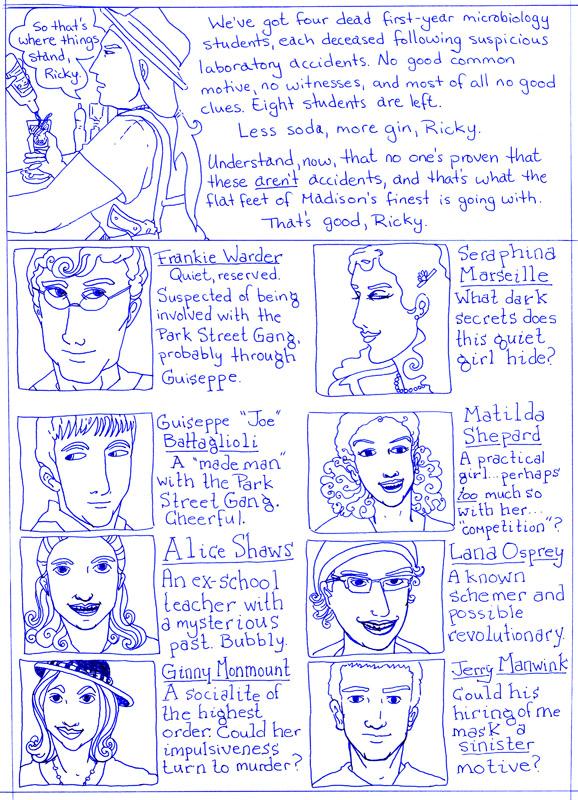 So that's
where things
stand,
Ricky.
We've got four dead first-year microbiology
students, each deceased following suspicious
laboratory accidents. No good common
motive, no witnesses, and most of all no good
clues. Eight students are left.
Less soda, more gin, Ricky.
Understand, now, that no one's proven that
these aren't accidents, and that's what the
flat feet of Madison's finest is going with.
That's good, Ricky.
Frankie Warder
Quiet, reserved.
Suspected of being
involved with the
Park Street Gang,
probably through
Guiseppe.
Seraphina
Marseille
What dark
secrets does
this quiet
girl hide?
Guiseppe "Joe"
Battaglioli
A "made man"
with the Park
Street Gang.
Cheerful.
Matilda
Shepard
A practical
girl...perhaps
too much so
with her...
"competition"?
Alice Shaws
An ex-school
teacher with
a mysterious
past. Bubbly.
Lana Osprey
A known
schemer and
possible
revolutionary.
Ginny Monmount
A socialite of
the highest
order. Could her
impulsiveness
turn to murder?
Jerry Manwink
Could his
hiring of me
mask a
sinister
motive?